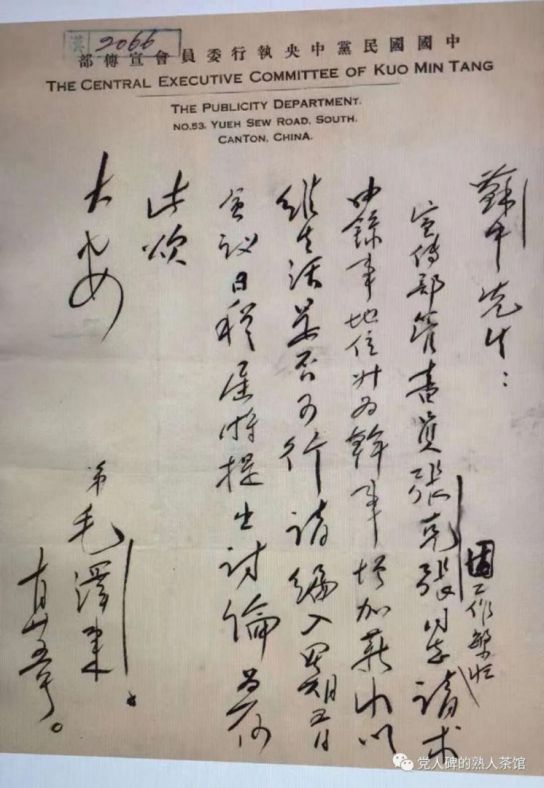 漢 2066
中國國民黨中央執行委員會宣傳部
THE CENTRAL EXECUTIVE COMMITTEE OF KUO MIN TANG
THE PUBLICITY DEPARTMENT.
NO.53, YUEH SEW ROAD, SOUTH.
CANTON, CHINA.
先生：
宣傳部管書員張克張因工作繁忙請求
由錄事地位升為幹事增加薪水以
維生活是否可行請編入月五日
會議日程屆時提出討論為荷
此頌
大安
弟毛澤東。
党人碑的熟人茶馆